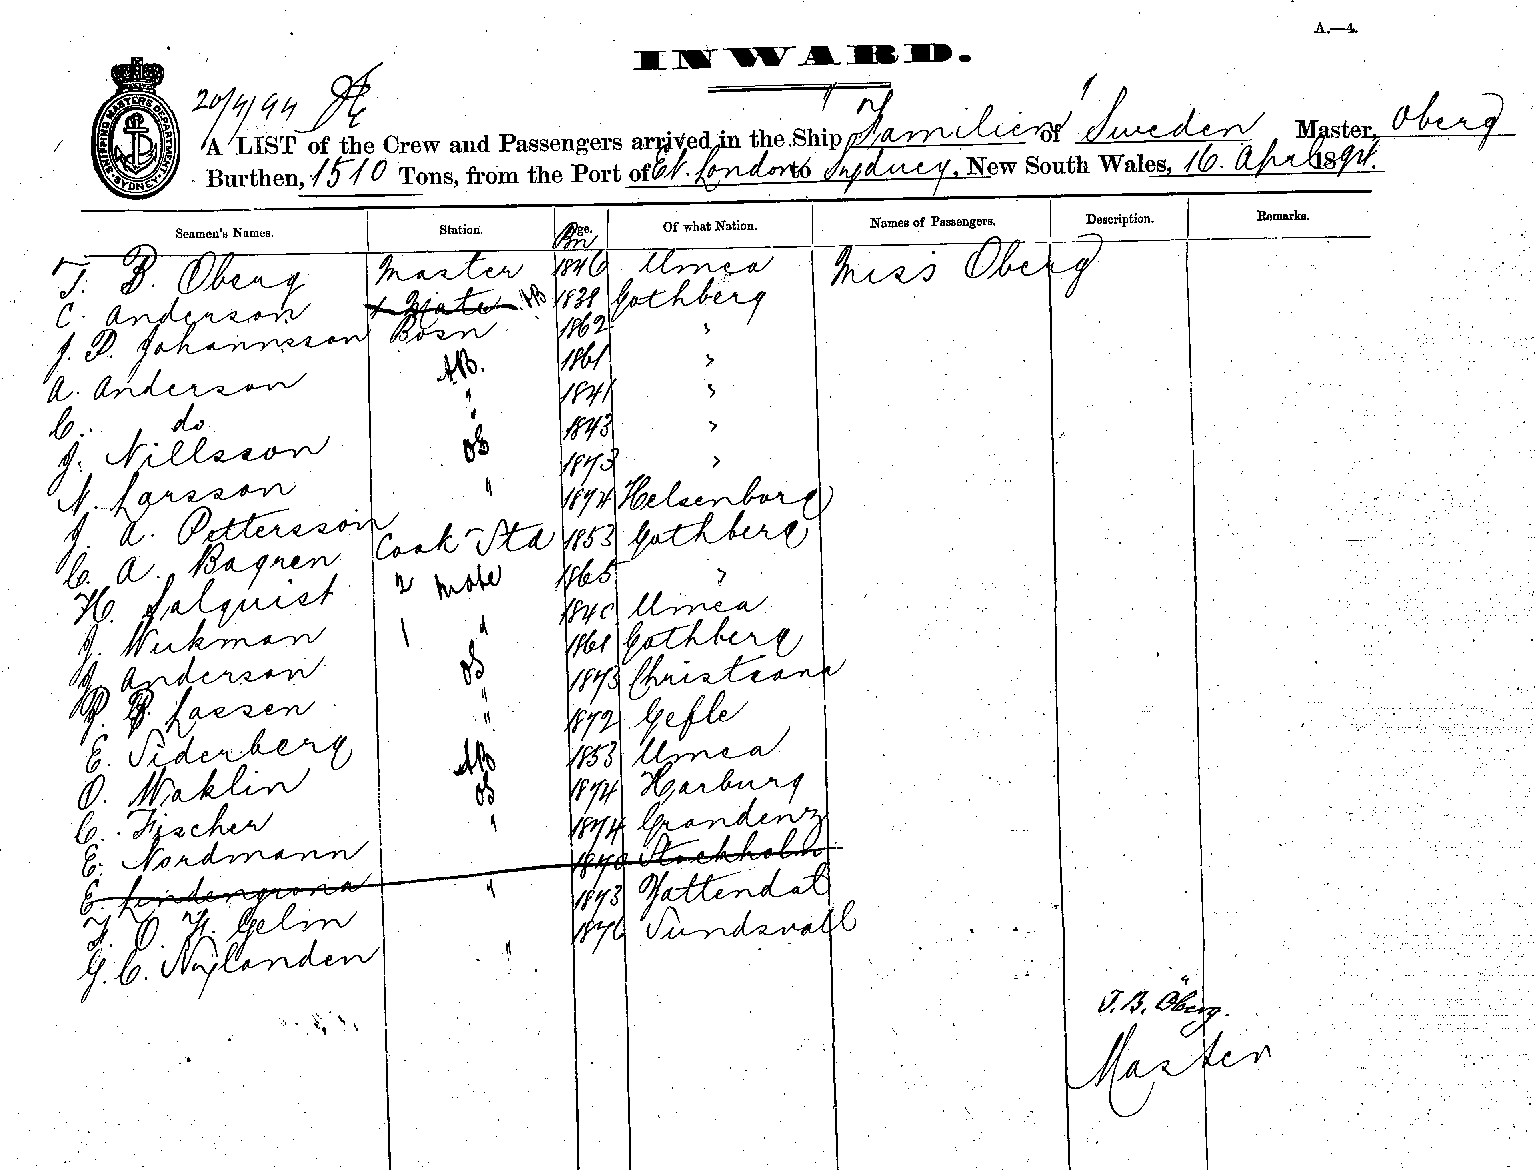 A.—4.
INWARD.
20/4/94
A LIST of the Crew and Passengers arrived in the Ship "Familien" of Sweden Master, Oberg
Burthen, 1510 Tons, from the Port of Et. London to Sydney, New South Wales, 16. April 1894.
SHIPPING MASTERS DEPARTMENT SYDNEY
Seamen's Names. Station. Age. Of what Nation. Names of Passengers. Description. Remarks.
Bn
T. B. Oberg Master 1846 Umea Miss Oberg
C. Anderson 1 Mate AB 1838 Gothberg
J. P. Johannsson Bosn 1862 "
A. Anderson AB. 1861 "
C. do " 1841 "
J. Nillsson " 1843 "
N. Larsson OS 1873 "
J. A. Pettersson " 1874 Helsenborg
C. A. Bagren Cook Std 1853 Gothberg
H. Salquist 2 Mate 1865 "
J. Wickman 1 " 1840 Umea
J. Anderson OS 1861 Gothberg
P. B. Lassen " 1873 Christiana
E. Siderberg " 1872 Gefle
O. Waklin AB 1853 Umea
C. Fischer OS 1874 Harburg
E. Nordmann " 1874 Grandenz
E. Lindengrona 1870 Stockholm
F. O. H. Gelin " 1873 Vattendal
G. C. Nylanden " 1876 Sundsvall
T. B. Öberg.
Master